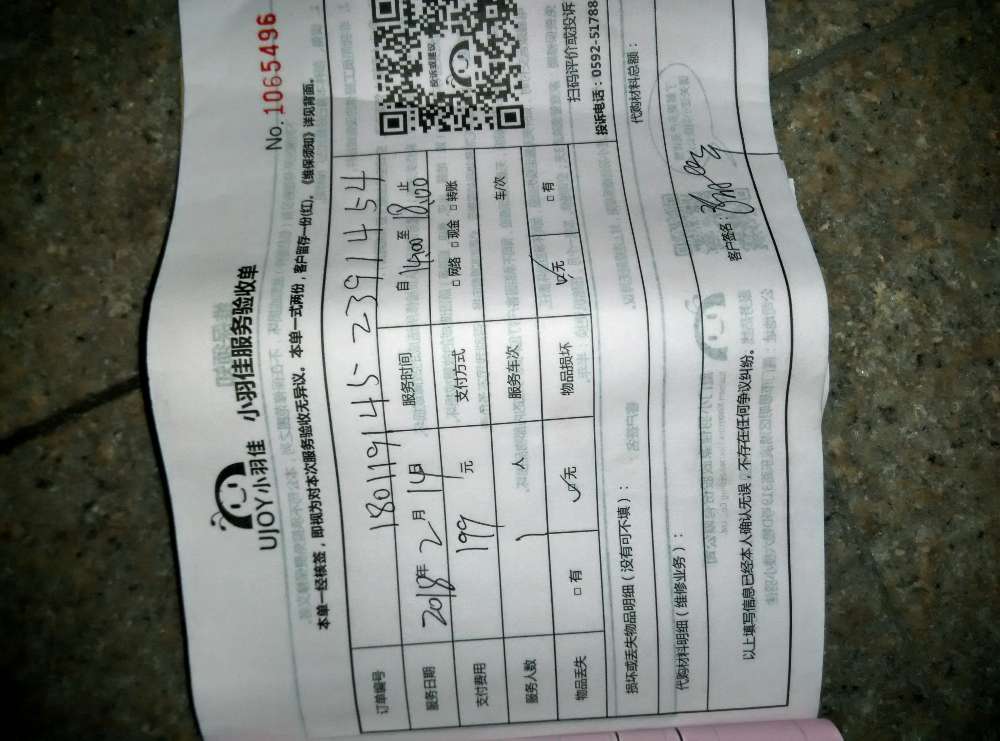 No. 1065496
UJOY小羽佳 小羽佳服务验收单
本单一经核签，即视为对本次服务验收无异议。本单一式两份，客户留存一份(红)。《维保须知》详见背面。
订单编号 180119145-2391454
服务日期 2018年 2月 14日 服务时间 自 14:00 至 18:00 止
支付费用 199 元 支付方式 □ 网络 □ 现金 □ 转账
服务人数 1 人 服务车次 车/次
物品丢失 □ 有 ☑ 无 物品损坏 ☑ 无 □ 有
损坏或丢失物品明细（没有可不填）：
代购材料明细（维修业务）： 代购材料总额：
以上填写信息已经本人确认无误，不存在任何争议纠纷。 客户签名：
投诉或建议
扫码评价或投诉
投诉电话：0592-51788